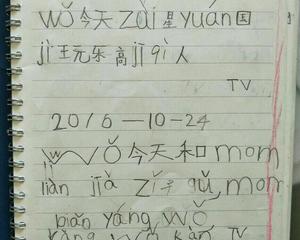 wǒ 今天 zài 星 yuán 国
jì 王元乐 高 jī qì 人
TV
2016—10—24
wǒ 今天 和 mom
liàn jià zǐ gǔ, mom
biǎn yáng wǒ
kàn TV